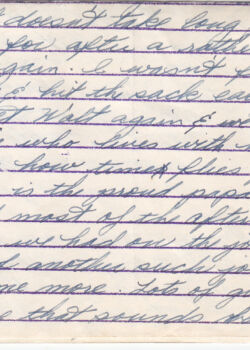 doesn't take long
for after a
again. I wasn't
hit the sack
Walt again &
who lives with
how time flies
is the proud papa
most of the
we had on the
another such
me more. Lots of
that sounds